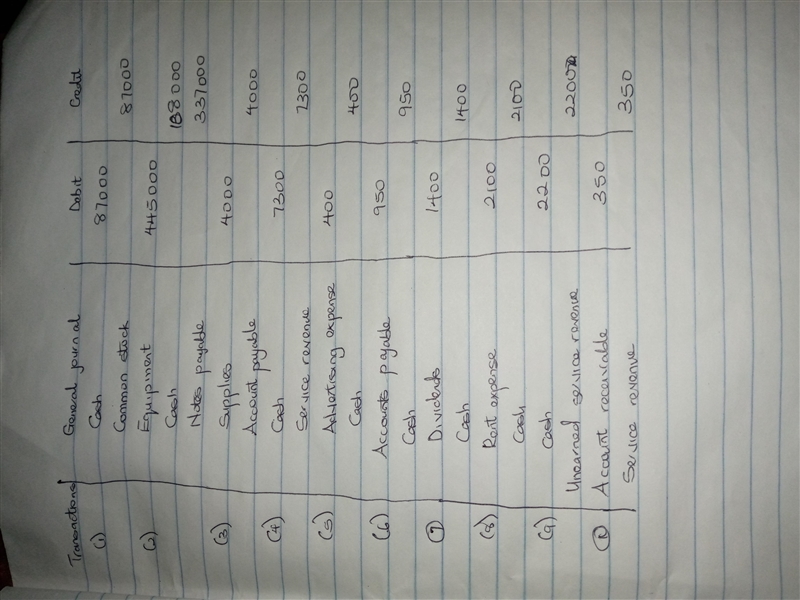 Transactions General journal Debit Credit
(1) Cash 87000
Common stock 87000
(2) Equipment 445000
Cash 108000
Notes payable 337000
(3) Supplies 4000
Account payable 4000
(4) Cash 7300
Service revenue 7300
(5) Advertising expense 400
Cash 400
(6) Accounts payable 950
Cash 950
(7) Dividends 1400
Cash 1400
(8) Rent expense 2100
Cash 2100
(9) Cash 2200
Unearned service revenue 2200
(10) Account receivable 350
Service revenue 350